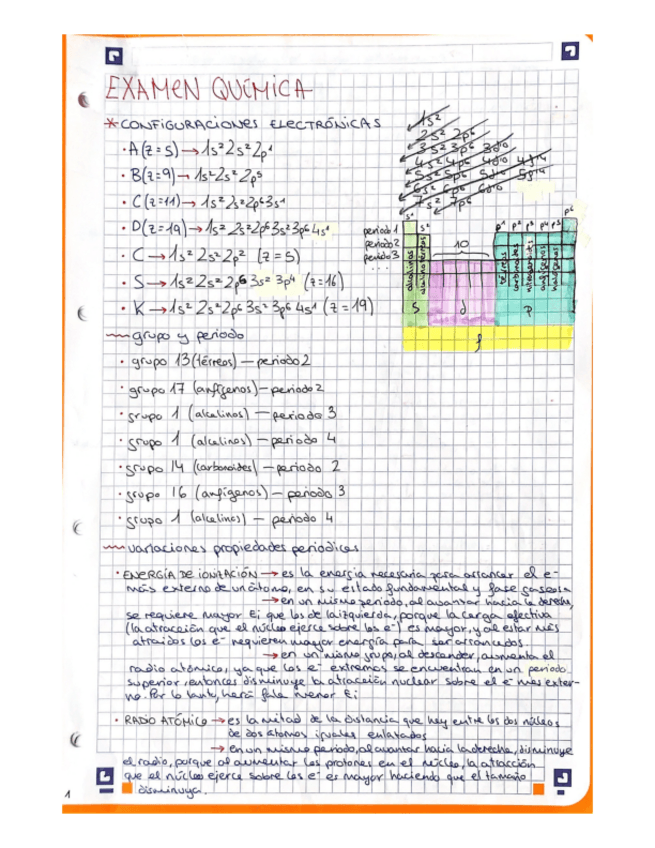 EXAMEN QUÍMICA
* CONFIGURACIONES ELECTRÓNICAS
· A (z=5) → 1s² 2s² 2p¹
· B (z=9) → 1s² 2s² 2p⁵
· C (z=11) → 1s² 2s² 2p⁶ 3s¹
· D (z=19) → 1s² 2s² 2p⁶ 3s² 3p⁶ 4s¹
· C → 1s² 2s² 2p² (z=5)
· S → 1s² 2s² 2p⁶ 3s² 3p⁴ (z=16)
· K → 1s² 2s² 2p⁶ 3s² 3p⁶ 4s¹ (z=19)
1s²
2s² 2p⁶
3s² 3p⁶ 3d¹⁰
4s² 4p⁶ 4d¹⁰ 4f¹⁴
5s² 5p⁶ 5d¹⁰ 5f¹⁴
6s² 6p⁶ 6d¹⁰
7s² 7p⁶
s¹ s² p¹ p² p³ p⁴ p⁵ p⁶
periodo 1
periodo 2
periodo 3
...
10
alcalinos
alcalinotérreos
térreos
carbonoides
nitrogenoides
anfígenos
halógenos
s d p
f
grupo y periodo
· grupo 13 (térreos) — periodo 2
· grupo 17 (anfígenos) — periodo 2
· grupo 1 (alcalinos) — periodo 3
· grupo 1 (alcalinos) — periodo 4
· grupo 14 (carbonoides) — periodo 2
· grupo 16 (anfígenos) — periodo 3
· grupo 1 (alcalinos) — periodo 4
variaciones propiedades periódicas
· ENERGÍA DE IONIZACIÓN → es la energía necesaria para arrancar el e-
más externo de un átomo, en su estado fundamental y fase gaseosa
→ en un mismo periodo, al avanzar hacia la derecha,
se requiere mayor Ei que los de la izquierda, porque la carga efectiva
(la atracción que el núcleo ejerce sobre los e-) es mayor, y al estar más
atraidos los e- requieren mayor energía para ser arrancados.
→ en un mismo grupo, al descender, aumenta el
radio atómico, ya que los e- extremos se encuentran en un periodo
superior, entonces disminuye la atracción nuclear sobre el e- más exter-
no. Por lo tanto, hará falta menor Ei
· RADIO ATÓMICO → es la mitad de la distancia que hay entre los dos núcleos
de dos átomos iguales enlazados
→ en un mismo periodo, al avanzar hacia la derecha, disminuye
el radio, porque al aumentar los protones en el núcleo, la atracción
que el núcleo ejerce sobre los e- es mayor haciendo que el tamaño
disminuya.
1